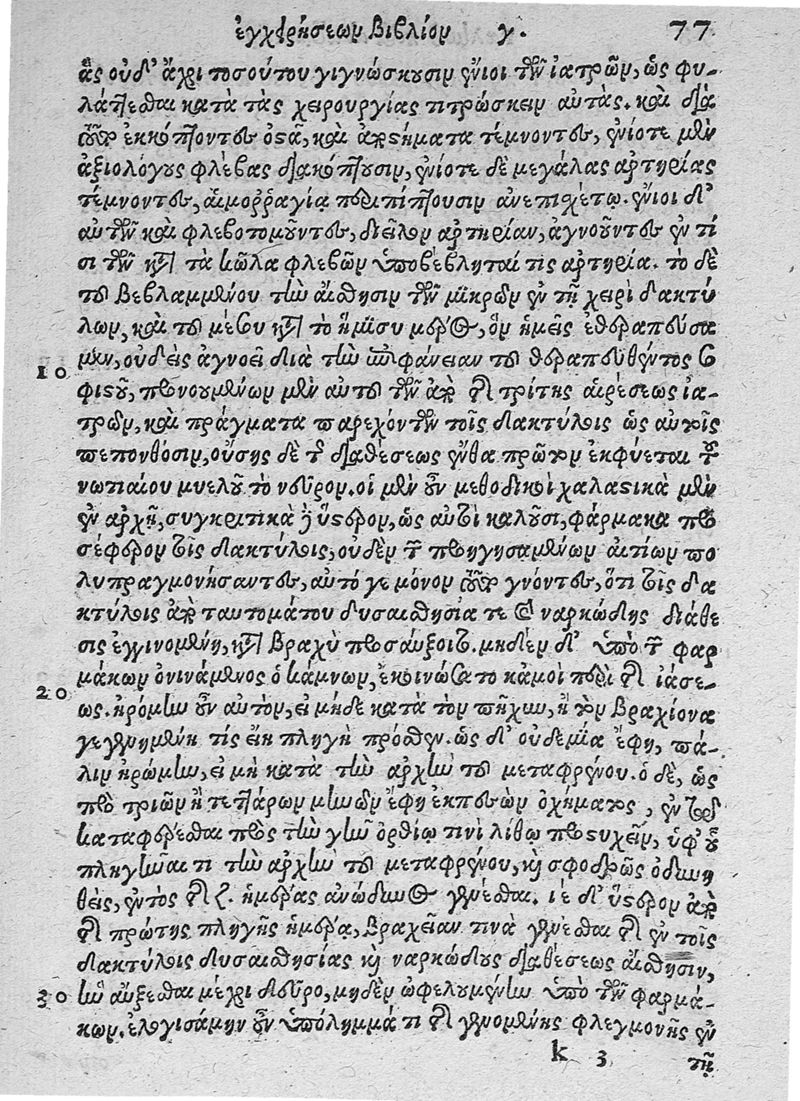 ἐγχειρήσεων βιβλίον γ. 77
ἃς οὐδ' ἄχρι τοσούτου γιγνώσκουσιν ἔνιοι τῶν ἰατρῶν, ὡς φυ-
λάττεσθαι κατὰ τὰς χειρουργίας τιτρώσκειν αὐτάς. καὶ διὰ
τοῦτο ἐκκόπτοντες ὀστᾶ, καὶ ἀποστήματα τέμνοντες, ἐνίοτε μὲν
ἀξιολόγους φλέβας διακόπτουσιν, ἐνίοτε δὲ μεγάλας ἀρτηρίας
τέμνοντες, αἱμορραγίᾳ περιπίπτουσιν ἀνεπισχέτῳ. ἔνιοι δ'
αὐτῶν καὶ φλεβοτομοῦντες, διεῖλον ἀρτηρίαν, ἀγνοοῦντες ἐν τί
σι τῶν κατὰ τὰ κῶλα φλεβῶν ὑποβέβληταί τις ἀρτηρία. τὸ δὲ
τοῦ βεβλαμμένου τὴν αἴσθησιν τῶν μϊκρῶν ἐν τῇ χειρὶ δακτύ
λων, καὶ τοῦ μέσου κατὰ τὸ ἥμϊσυ μέρος, ὃν ἡμεῖς ἐθεραπεύσα
10 μεν, οὐδεὶς ἀγνοεῖ διὰ τὴν ἐπιφάνειαν τοῦ θεραπευθέντος σο
φιστοῦ, προνουμένων μὲν αὐτοῦ τῶν ἀπὸ τῆς τρίτης αἱρέσεως ἰα-
τρῶν, καὶ πράγματα παρεχόντων τοῖς δακτύλοις ὡς αὐτοῖς
πεπονθόσιν, οὔσης δὲ τῆς διαθέσεως ἔνθα πρῶτον ἐκφύεται τοῦ
νωτιαίου μυελοῦ τὸ νεῦρον. οἱ μὲν οὖν μεθοδικοὶ χαλαστικὰ μὲν
ἐν ἀρχῇ, συγκριτικὰ δ' ὕστερον, ὡς αὐτοὶ καλοῦσι, φάρμακα προ
σέφερον τοῖς δακτύλοις, οὐδὲν τῶν προηγησαμένων αἰτίων πο
λυπραγμονήσαντες, αὐτό γε μόνον τοῦτο γνόντες, ὅτι τοῖς δα
κτύλοις ἀπὸ ταυτομάτου δυσαισθησία τε καὶ ναρκώδης διάθε
σις ἐγγινομένη, κατὰ βραχὺ προσαύξοιτο. μηδὲν δ' ὑπὸ τῶν φαρ
20 μάκων ὀνινάμενος ὁ κάμνων, ἐκοινώσατο κἀμοὶ περὶ τῆς ἰάσε-
ως. ἠρόμην οὖν αὐτὸν, εἰ μήδε κατὰ τὸν πῆχυν, ἢ τὸν βραχίονα
γεγενημένη τίς εἴη πληγὴ πρόσθεν. ὡς δ' οὐδεμία ἔφη, πά-
λιν ἠρώμην, εἰ μὴ κατὰ τὴν ἀρχὴν τοῦ μεταφρένου. ὁ δὲ, ὡς
πρὸ τριῶν ἢ τεττάρων μηνῶν ἔφη ἐκπεσὼν ὀχήματος, ἐν τῷ
καταφέρεσθαι πρὸς τὴν γῆν ὀρθίῳ τινὶ λίθῳ προστυχεῖν, ὑφ' οὗ
πληγῆναί τι τὴν ἀρχὴν τοῦ μεταφρένου, καὶ σφοδρῶς ὀδυνη
θεὶς, ἐντὸς τῆς ζ. ἡμέρας ἀνώδυνος γενέσθαι. ιε δ' ὕστερον ἀπὸ
τῆς πρώτης πληγῆς ἡμέρᾳ, βραχεῖαν τινὰ γενέσθαι τῆς ἐν τοῖς
δακτύλοις δυσαισθησίας καὶ ναρκώδους διαθέσεως αἴσθησιν,
30 ἣν αὔξεσθαι μέχρι δεῦρο, μηδὲν ὠφελουμένην ὑπὸ τῶν φαρμά-
κων. ἐλογισάμην οὖν ὑπόλημμά τι τῆς γενομένης φλεγμονῆς ἐν
k 3 τῇ